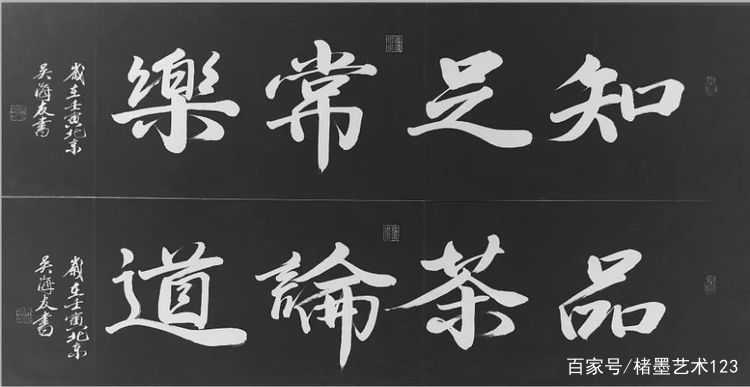 知足常樂
歲在壬寅北京
吳海友書
品茶論道
歲在壬寅北京
吳海友書
百家号/楮墨艺术123